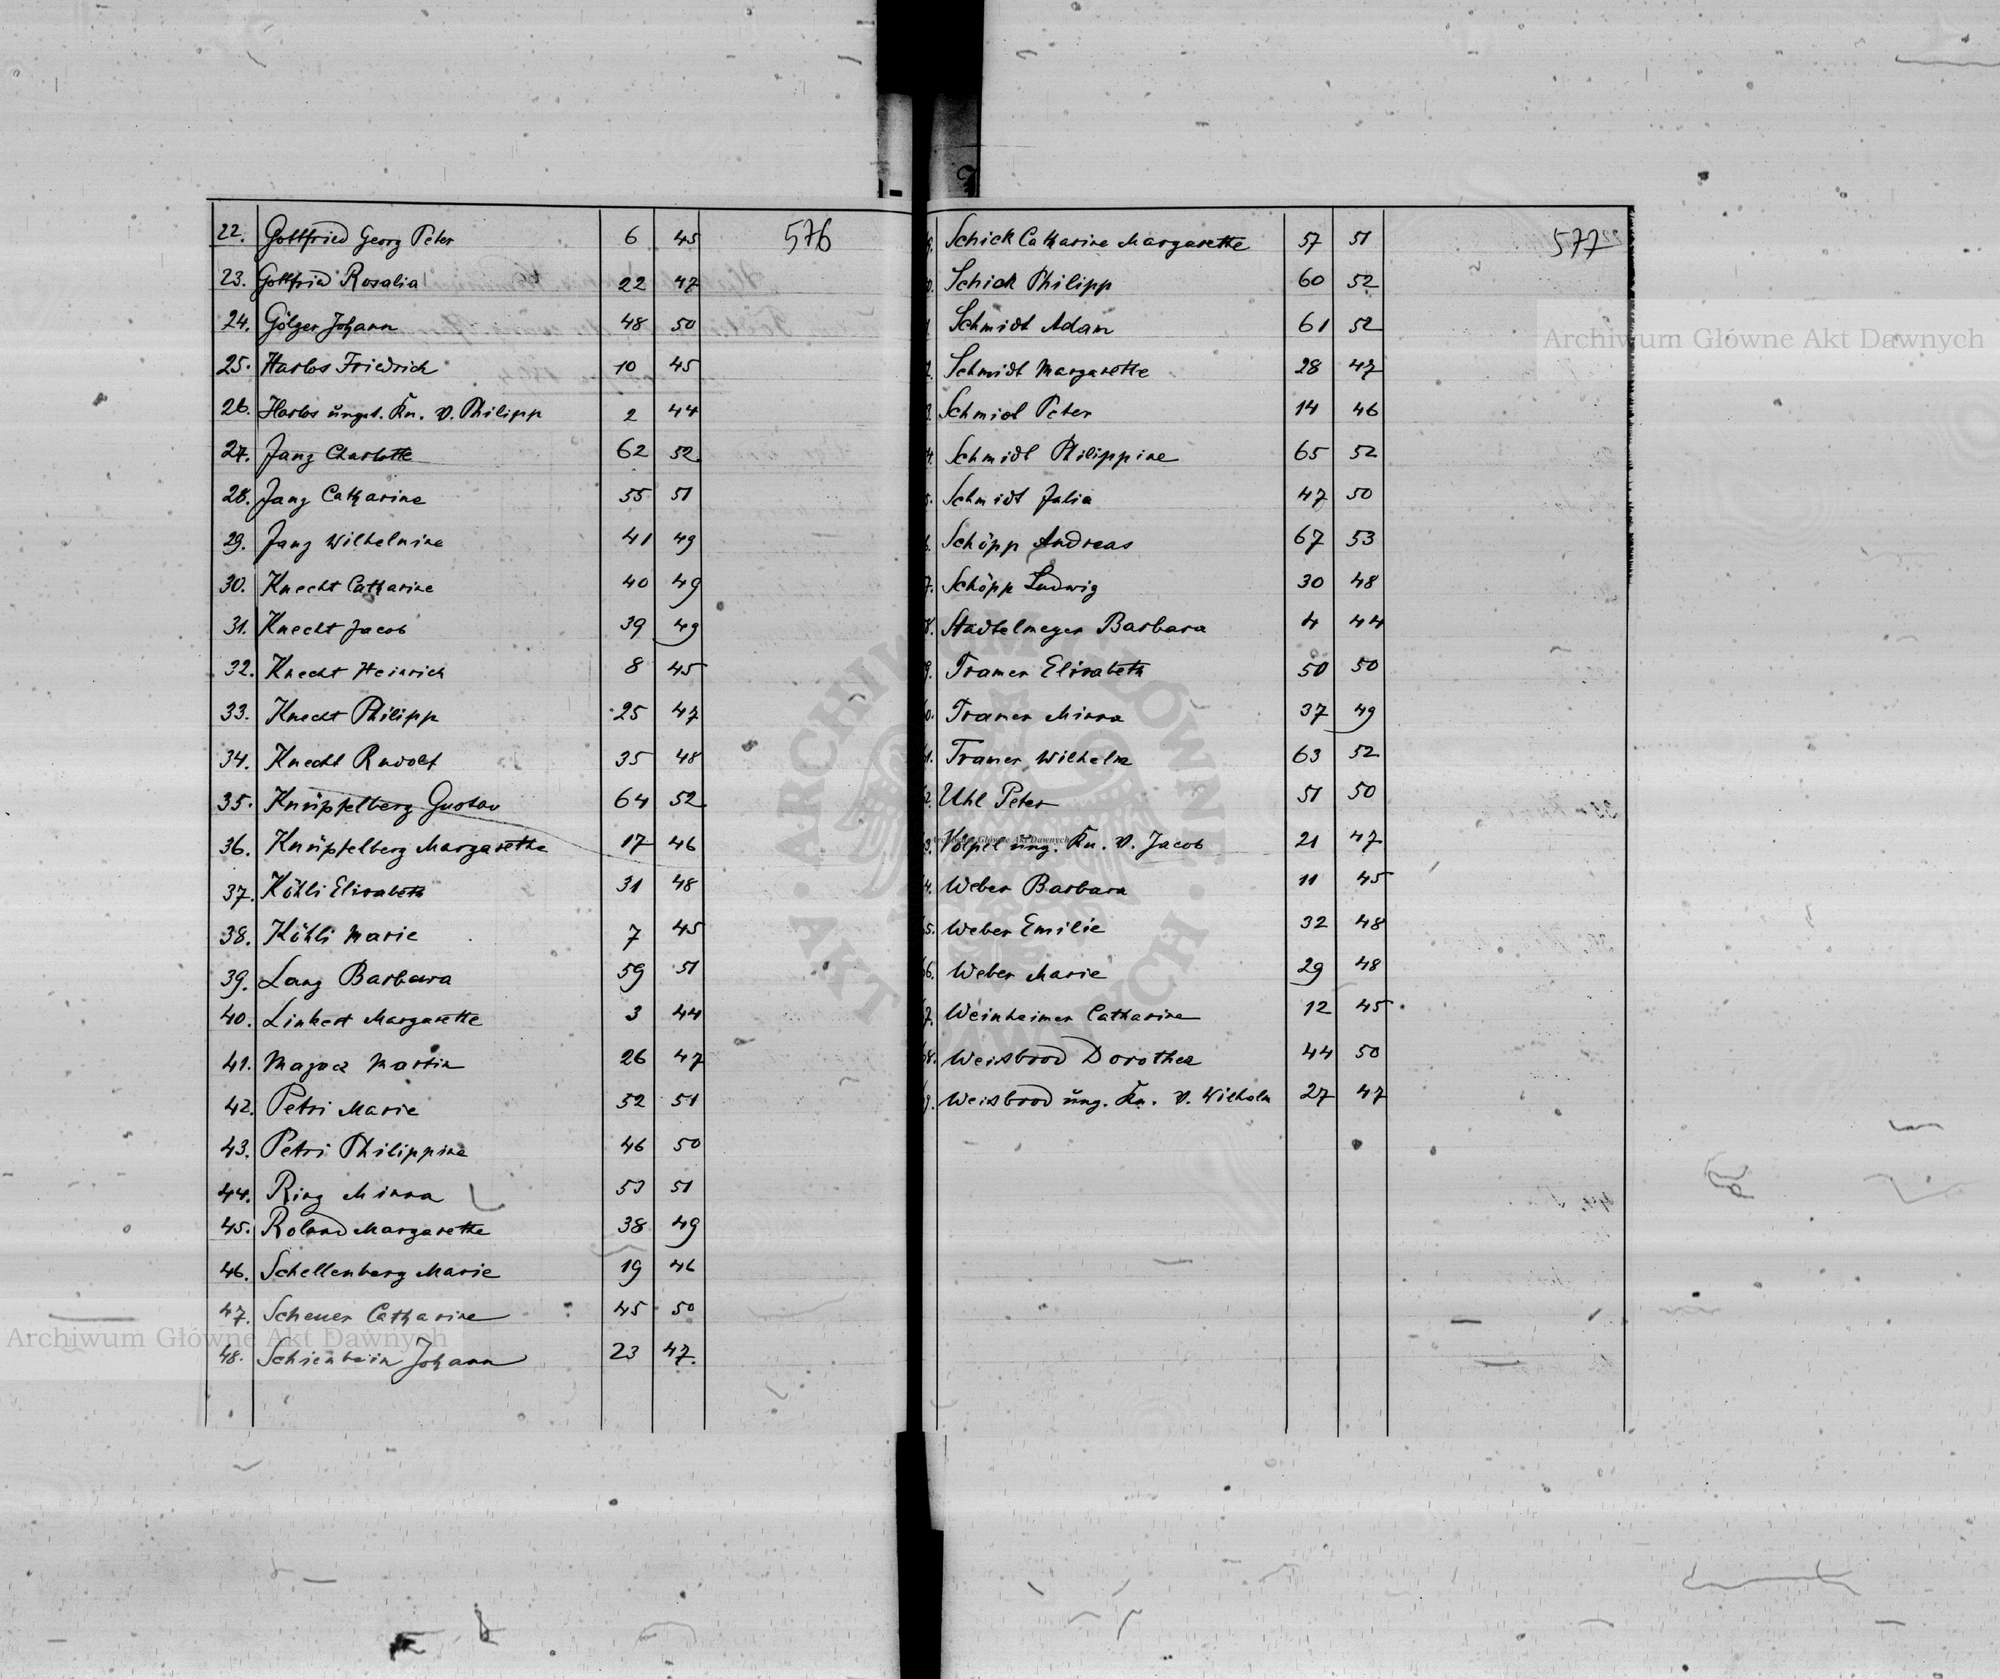 576
22. Gottfried Georg Peter 6 45
23. Gottfried Rosalia 22 47
24. Gölzer Johann 48 50
25. Harlos Friedrich 10 45
26. Harlos unget. Kn. v. Philipp 2 44
27. Janz Charlotte 62 52
28. Janz Catharine 55 51
29. Janz Wilhelmine 41 49
30. Knecht Catharine 40 49
31. Knecht Jacob 39 49
32. Knecht Heinrich 8 45
33. Knecht Philipp 25 47
34. Knecht Rudolf 35 48
35. Knüpfelberg Gustav 64 52
36. Knüpfelberg Margarethe 17 46
37. Köhli Elisabeth 31 48
38. Köhli Marie 7 45
39. Lang Barbara 59 51
40. Linkert Margarethe 3 44
41. Martin 26 47
42. Petri Marie 52 51
43. Petri Philippine 46 50
44. Ring Minna 53 51
45. Roland Margarethe 38 49
46. Schellenberg Marie 19 46
47. Scheuer Catharine 45 50
48. Schienbein Johann 23 47.
577
9. Schick Catharine Margarethe 57 51
0. Schick Philipp 60 52
1. Schmidt Adam 61 52
2. Schmidt Margarethe 28 47
3. Schmidt Peter 14 46
4. Schmidt Philippine 65 52
5. Schmidt Julia 47 50
6. Schöpp Andreas 67 53
7. Schöpp Ludwig 30 48
8. Stadtelmeyer Barbara 4 44
9. Tramer Elisabeth 50 50
0. Tramer Minna 37 49
1. Tramer Wilhelm 63 52
2. Uhl Peter 51 50
3. Völpel ung. Kn. v. Jacob 21 47
4. Weber Barbara 11 45
5. Weber Emilie 32 48
6. Weber Marie 29 48
7. Weinheimer Catharine 12 45
8. Weisbrod Dorothea 44 50
9. Weisbrod ung. Kn. v. Wilhelm 27 47
Archiwum Główne Akt Dawnych
Archiwum Główne Akt Dawnych
Archiwum Główne Akt Dawnych
ARCHIWUM GŁÓWNE AKT DAWNYCH